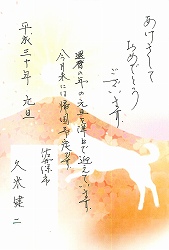 あけまして
おめでとう
ございます
還暦の年の元旦を洋上で迎えています
今月末には帰国予定です
佐世保市
久米健二
平成三十年 元旦